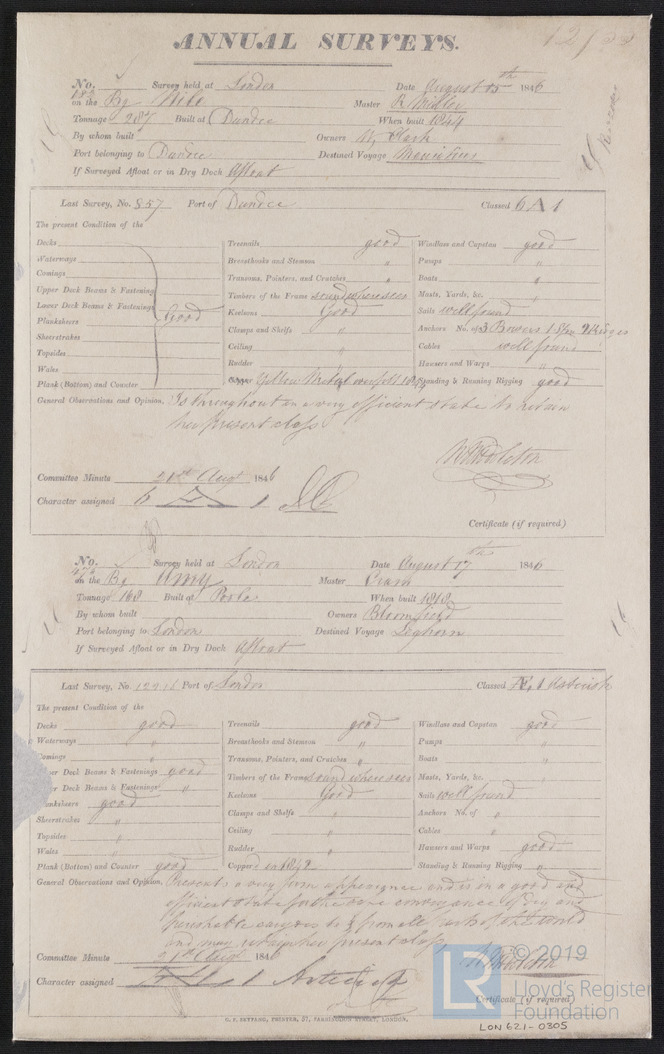 ANNUAL SURVEYS.
No. Survey held at London Date August 15th 1846
on the Bg Nile Master R. Miller
Tonnage 287 Built at Dundee When built 1844
By whom built Owners W. Clark
Port belonging to Dundee Destined Voyage Mauritius
If Surveyed Afloat or in Dry Dock Afloat
Last Survey, No. 857 Port of Dundee Classed 6 A 1
The present Condition of the
Decks
Waterways
Comings
Upper Deck Beams & Fastenings
Lower Deck Beams & Fastenings
Planksheers Good
Sheerstrakes
Topsides
Wales
Plank (Bottom) and Counter
Treenails good
Breasthooks and Stemson "
Transoms, Pointers, and Crutches "
Timbers of the Frame sound where seen
Keelsons Good
Clamps and Shelfs "
Ceiling "
Rudder "
Copper Yellow Metal over felt
Windlass and Capstan good
Pumps "
Boats "
Masts, Yards, &c. "
Sails well found
Anchors No. of 3 Bowers 1 2 Kedges
Cables well found
Hawsers and Warps "
Standing & Running Rigging good
General Observations and Opinion, Is throughout in a very efficient state to retain
her present class
Committee Minute 21st Augt 1846
Character assigned 6 A 1
Certificate (if required)
No. Survey held at London Date August 17th 1846
on the Bg Amy Master
Tonnage 168 Built at Poole When built 1818
By whom built Owners Bloomfield
Port belonging to London Destined Voyage Leghorn
If Surveyed Afloat or in Dry Dock Afloat
Last Survey, No Port of London Classed Æ 1 Asterisk
The present Condition of the
Decks good
Waterways "
Comings "
er Deck Beams & Fastenings good
r Deck Beams & Fastenings "
anksheers good
Sheerstrakes "
Topsides "
Wales "
Plank (Bottom) and Counter good
Treenails good
Breasthooks and Stemson "
Transoms, Pointers, and Crutches "
Timbers of the Frame sound where seen
Keelsons Good
Clamps and Shelfs "
Ceiling "
Rudder "
Copperd in 1842
Windlass and Capstan good
Pumps "
Boats "
Masts, Yards, &c. "
Sails well found
Anchors No. of "
Cables "
Hawsers and Warps good
Standing & Running Rigging "
General Observations and Opinion, Presents a very firm appearance and is in a good and
efficient state for the care conveyance of dry and
perishable cargoes to & from all parts of the World
and may retain her present class
Committee Minute 21st Augt 1846
Character assigned
Certificate (if required)
PRINTER, 57, FARRINGDON STREET, LONDON.
LON 621-0305
LR
© 2019
Lloyd's Register
Foundation